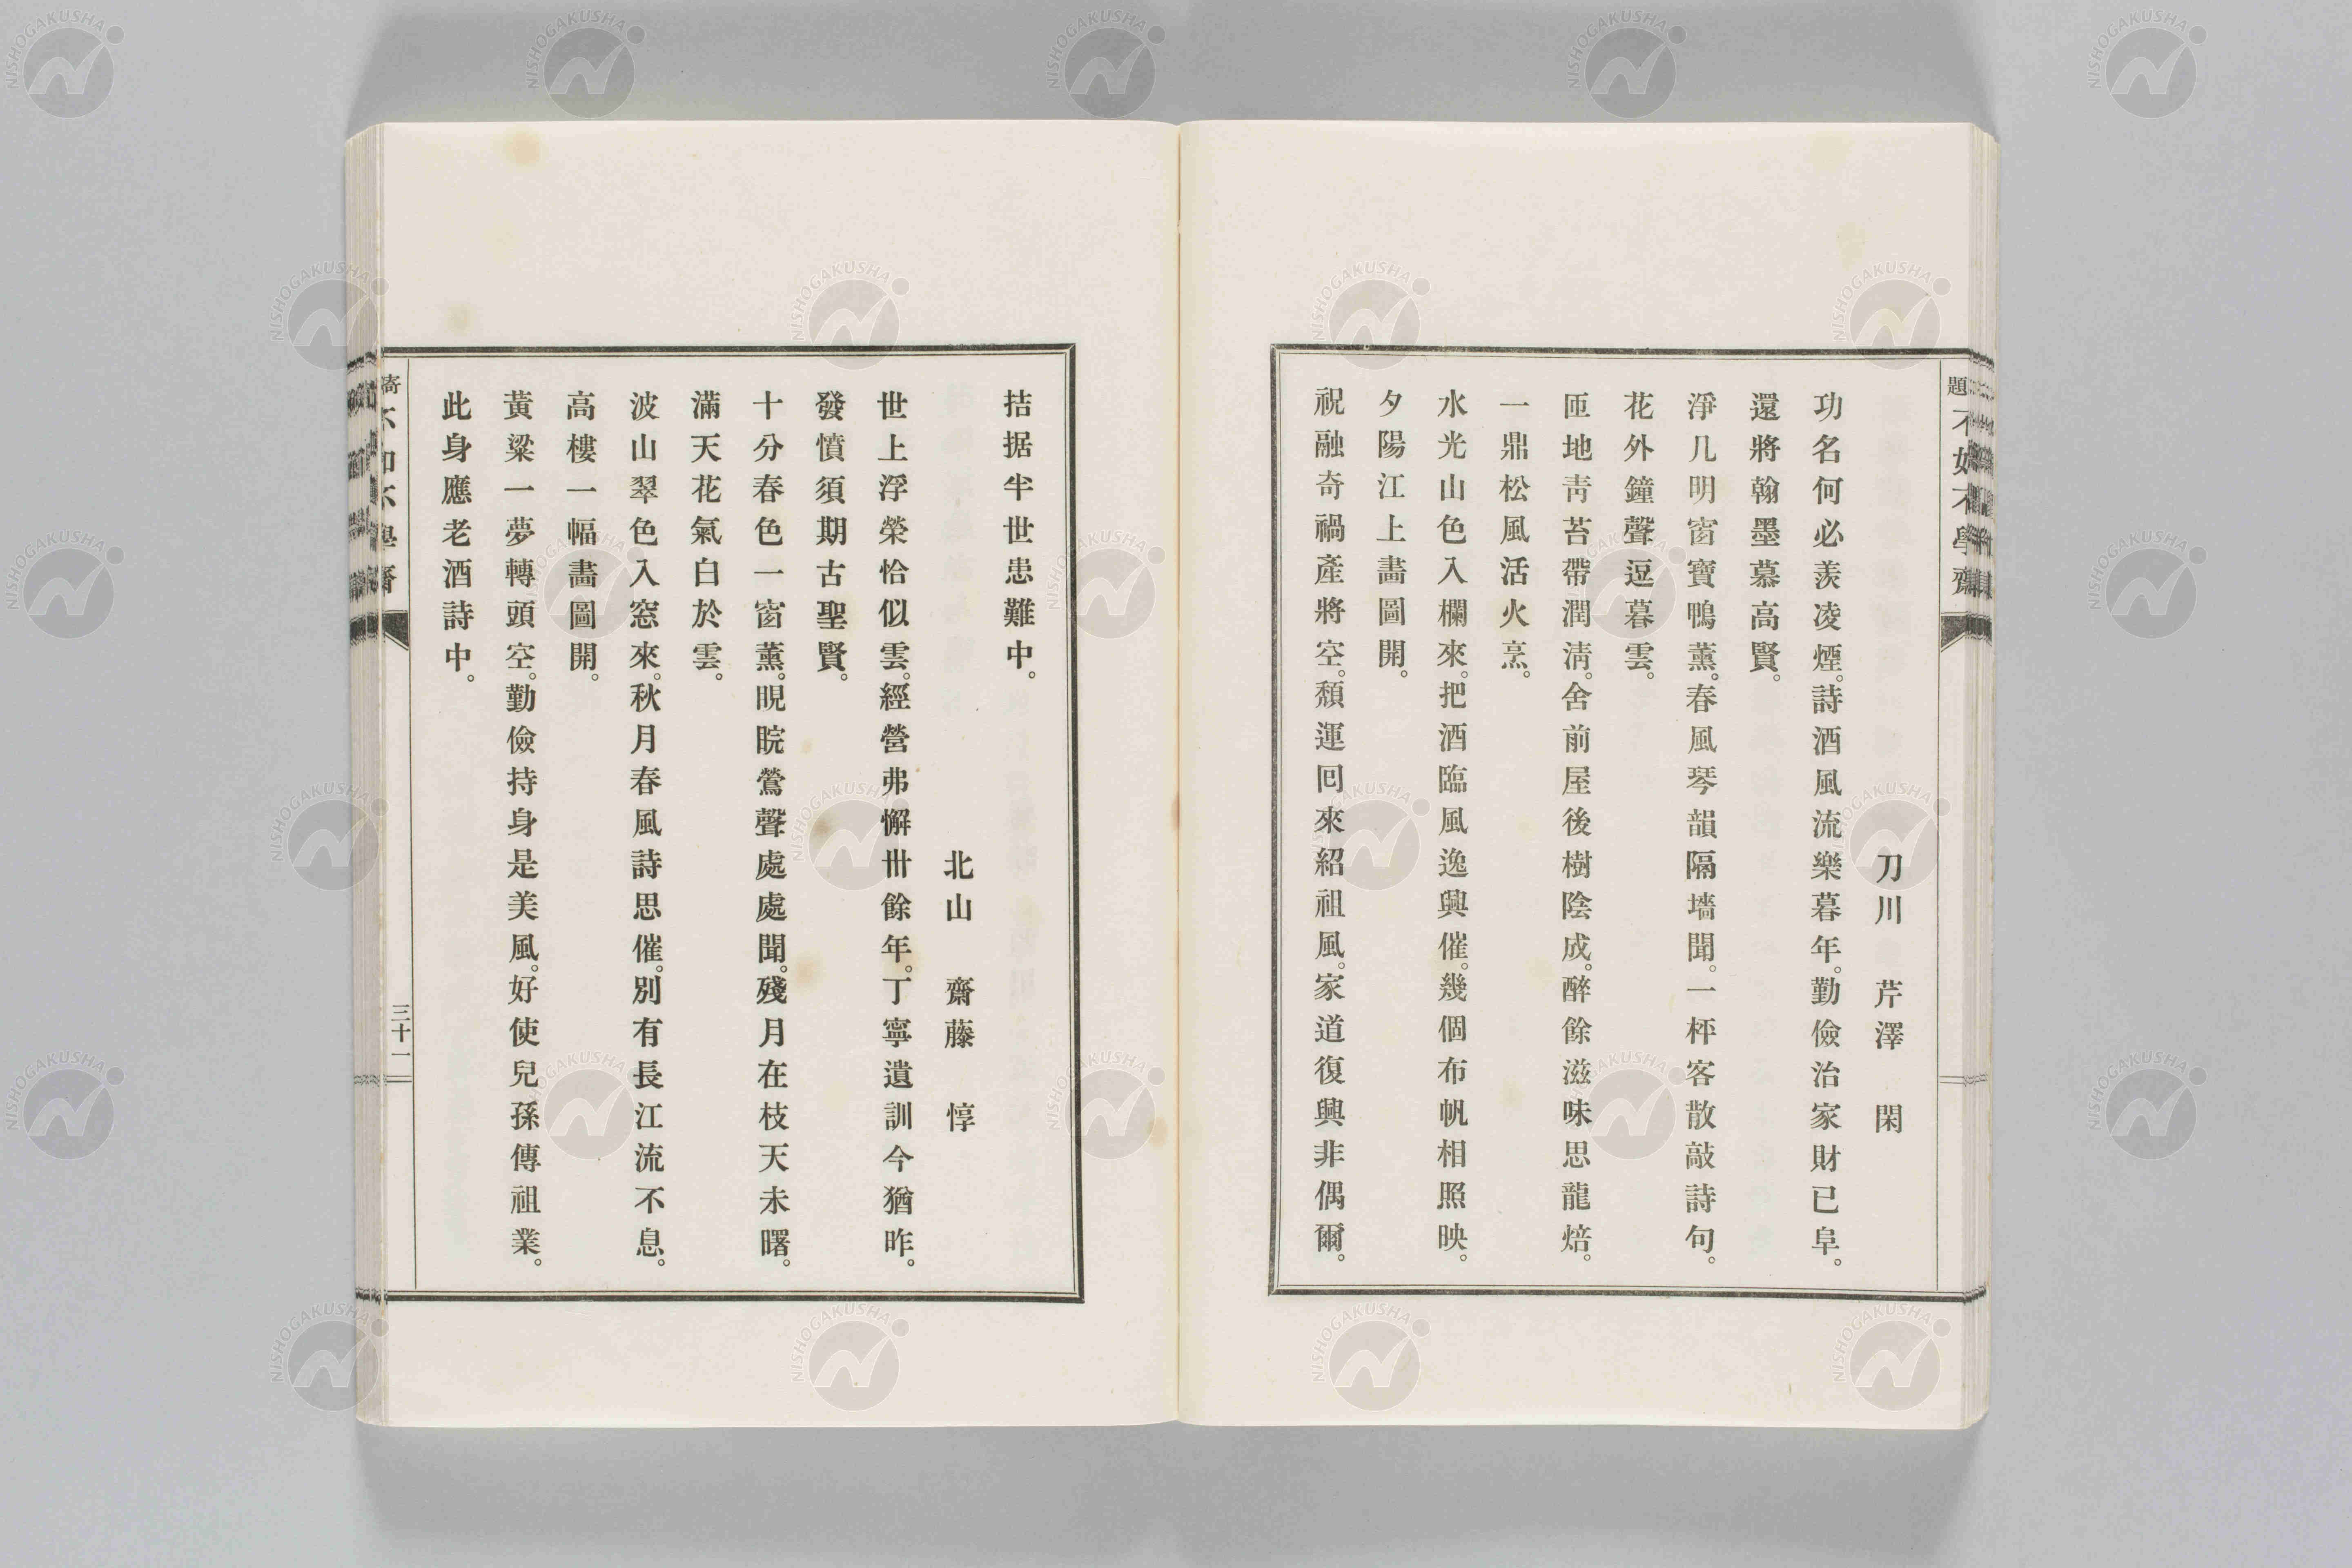 刀川　芹澤　閑
功名何必羨凌煙。詩酒風流樂暮年。勤儉治家財已阜。
還將翰墨慕高賢。
淨几明窗寶鴨薰。春風琴韻隔墻聞。一枰客散敲詩句。
花外鐘聲逗暮雲。
匝地靑苔帶潤淸。舍前屋後樹陰成。醉餘滋味思龍焙。
一鼎松風活火烹。
水光山色入欄來。把酒臨風逸興催。幾個布帆相照映。
夕陽江上畵圖開。
祝融奇禍產將空。頹運囘來紹祖風。家道復興非偶爾。
拮据半世患難中。
北山　齋藤　惇
世上浮榮恰似雲。經營弗懈卅餘年。丁寧遺訓今猶昨。
發憤須期古聖賢。
十分春色一窗薰。睍睆鶯聲處處聞。殘月在枝天未曙。
滿天花氣白於雲。
波山翠色入窓來。秋月春風詩思催。別有長江流不息。
高樓一幅畵圖開。
黃粱一夢轉頭空。勤儉持身是美風。好使兒孫傳祖業。
此身應老酒詩中。
三十一
NISHOGAKUSHA